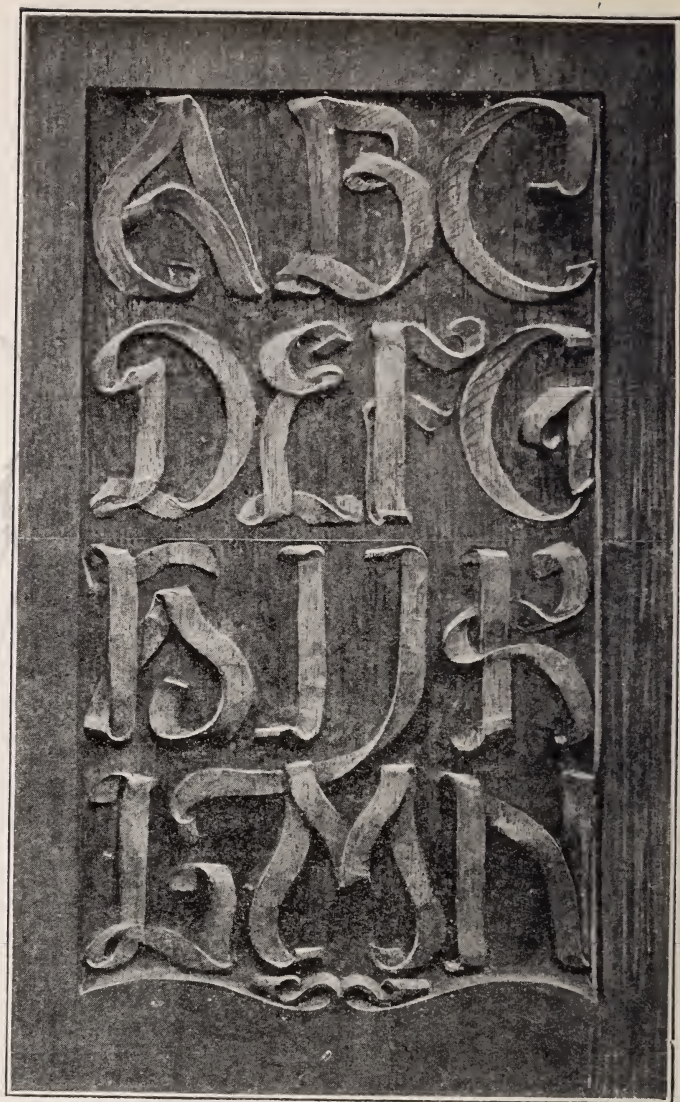 ABC
DEFG
HIJK
LMN